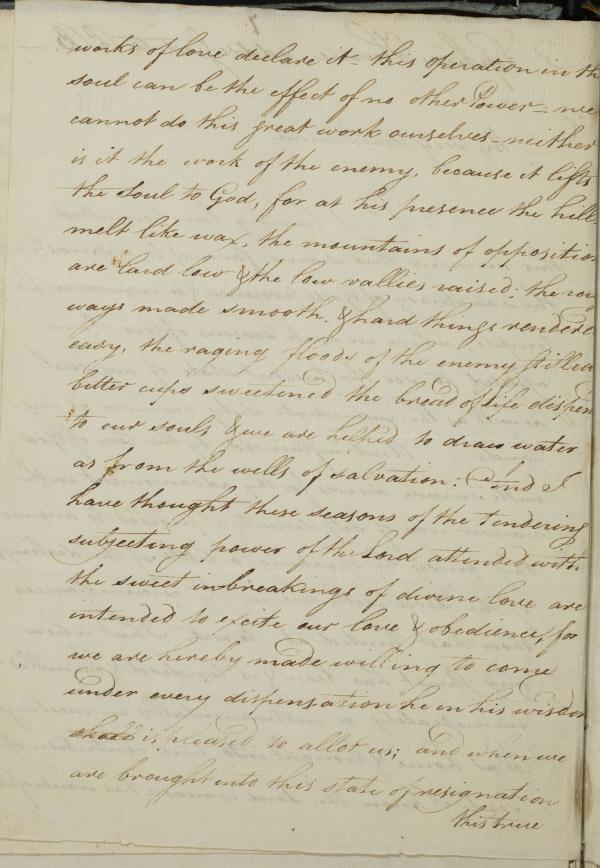 works of love declare it - this operation in the
soul can be the effect of no other Power - we
cannot do this great work ourselves - neither
is it the work of the enemy, because it lifts
the Soul to God, for at his presence the hill
melt like wax, the mountains of opposition
are laid low & the low vallies raised; the
ways made smooth, & hard things rendere
easy, the raging floods of the enemy stilled
bitter cups sweetened the bread of life dispen
to our souls & we are helped to draw water
as from the wells of salvation: And I
have thought these seasons of the tendering
subjecting power of the Lord attended with
the sweet inbreakings of divine love are
intended to excite our love & obedience, for
we are hereby made willing to come
under every dispensation he in his wisdom
is pleased to allot us; and when we
are brought into this state of resignation
this true